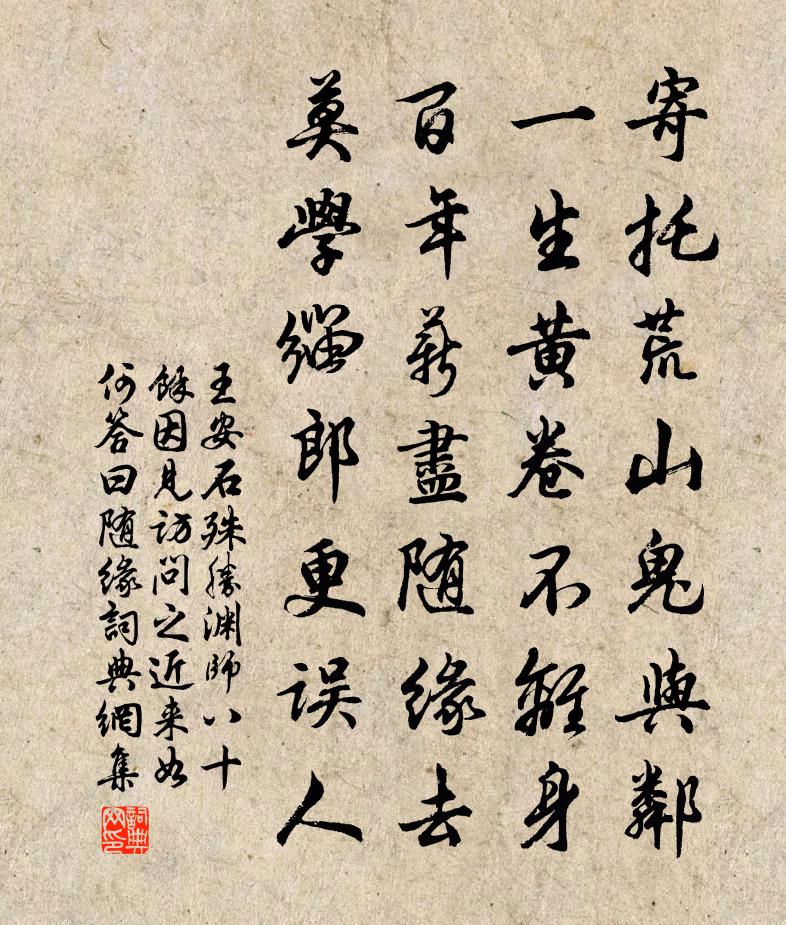 寄托荒山鬼與鄰
一生黄卷不離身
百年薪盡随缘去
莫學緇郎更误人
王安石殊勝渊師八十
餘因見访問之近来如
何答曰随缘詞典網集
詞典網印